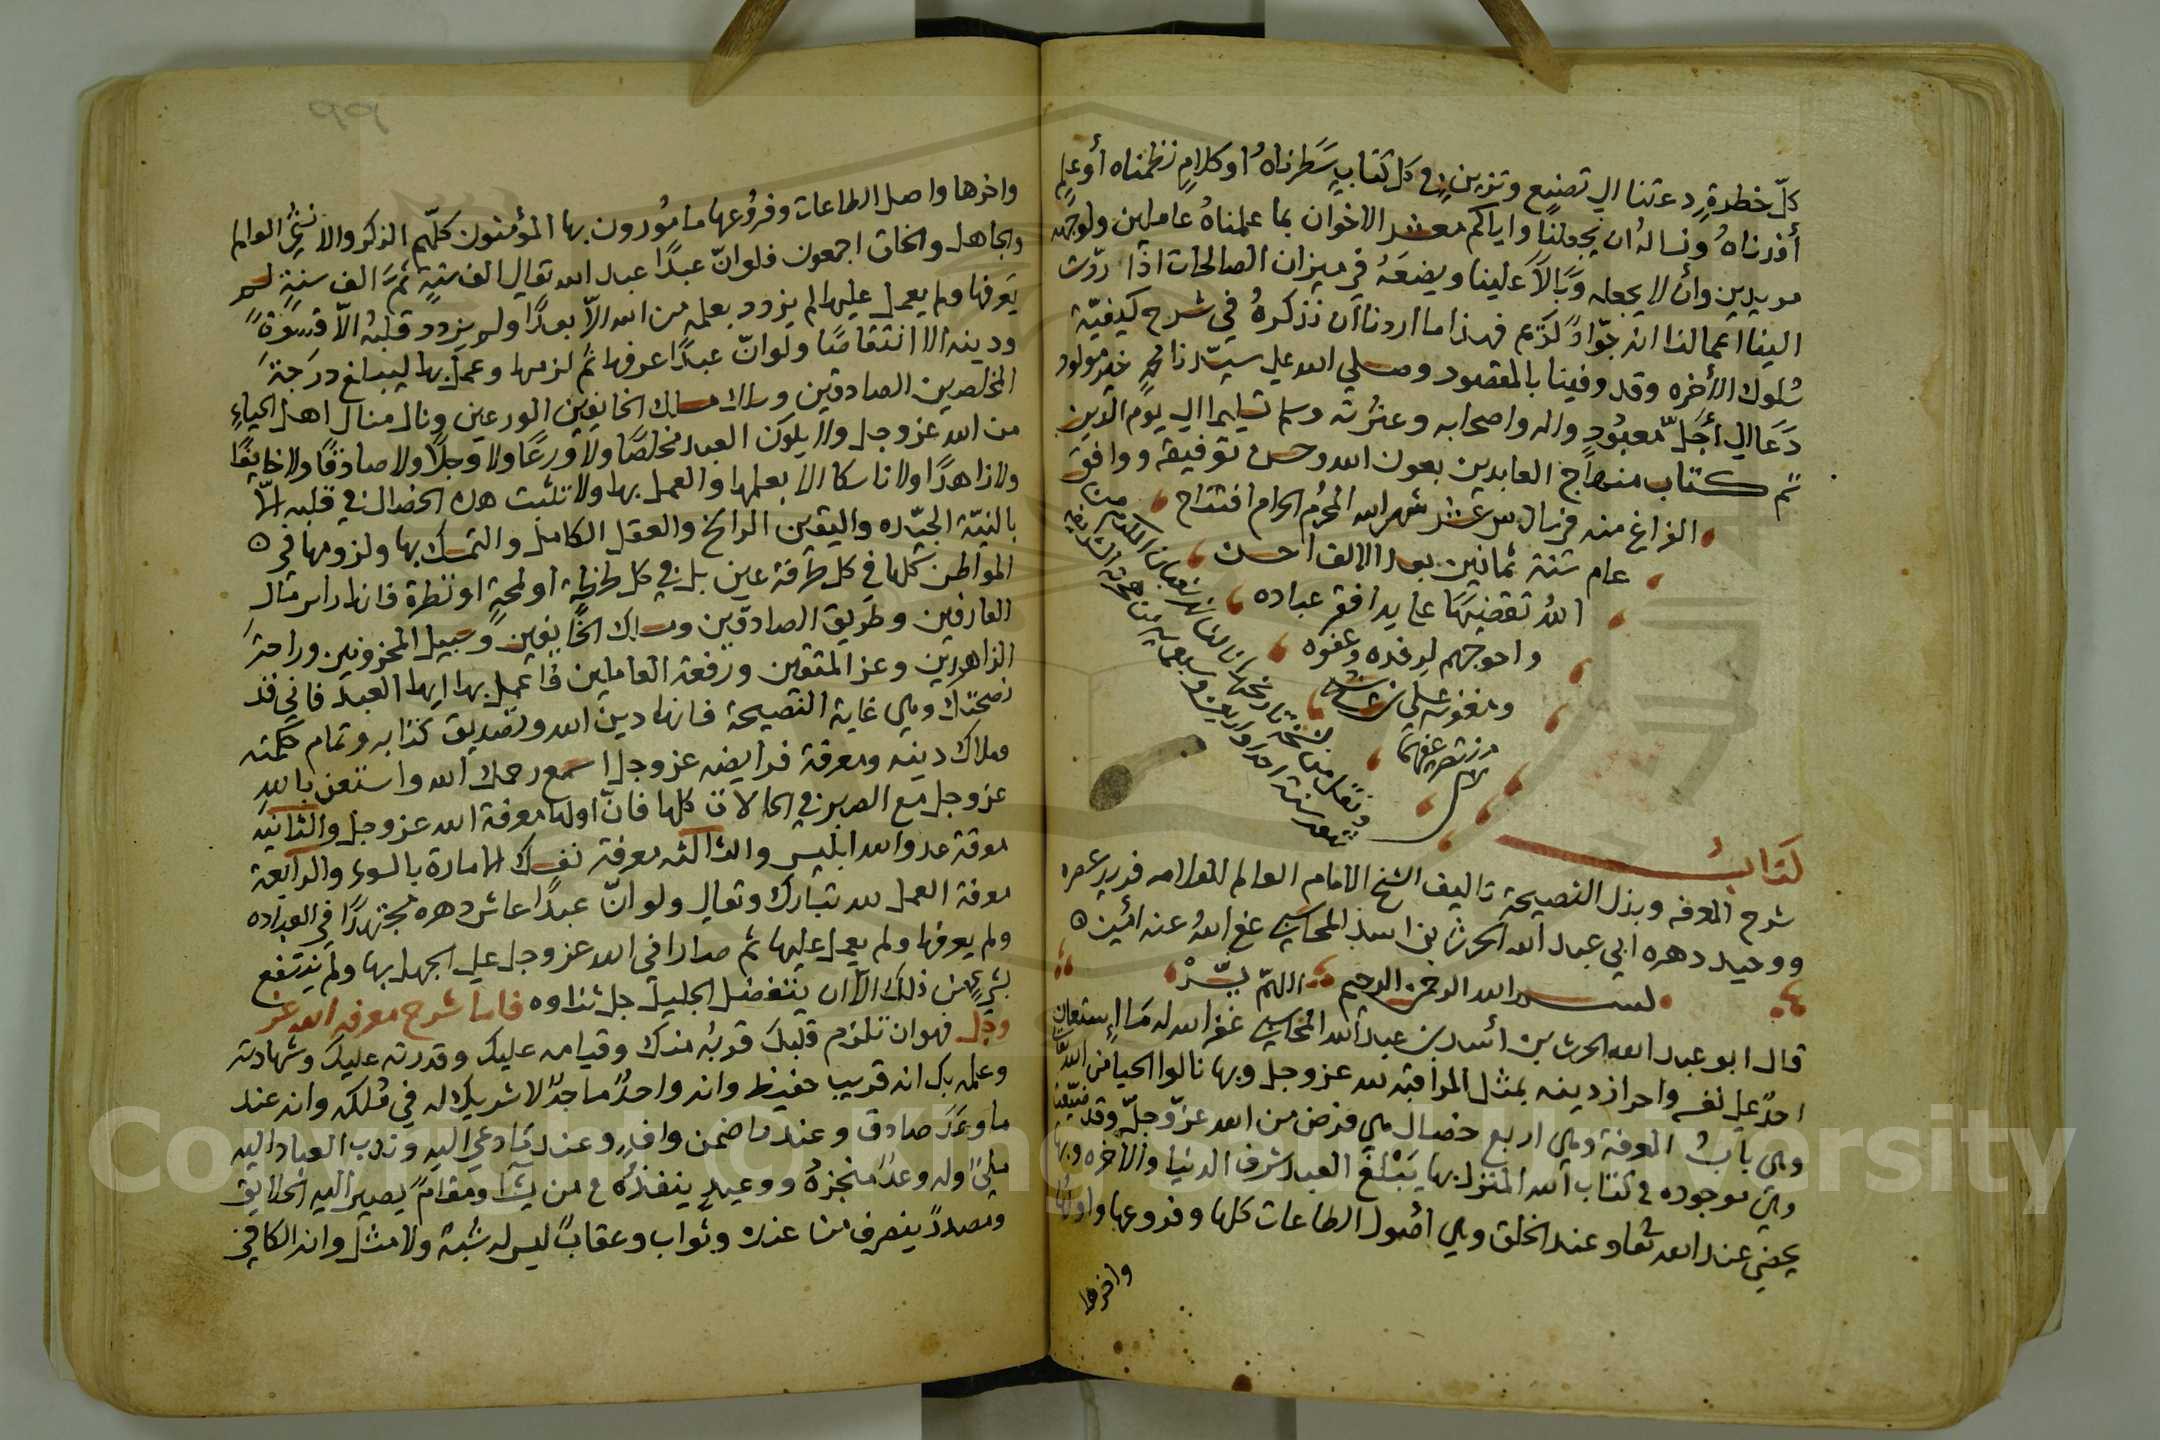 كلّ خطرةٍ دعتنا الى تصنع وتزين في كل كتابٍ سَطرناهُ او كلامٍ نظمناه أو علمٍ
أفدناهُ ونسالهُ ان يجعلنا واياكم معشر الاخوان بما علمناهُ عاملين ولوجهه
مريدين وأن لا يجعله وَبَالاً علينا ويضعَهُ في ميزان الصالحات اذا ردّت
الينا اعمالنا انه جوّادٌ كريم فهذا ما اردنا ان نذكرهُ في شرح كيفيّة
سُلوك الأخره وقد وفينا بالمقصود وصلى الله على سيّدنا محمدٍ خير مولود
دَعَا الى أجَلّ معبُودٍ واله واصحابه وعترته وسلم تسليما الى يوم الدين
تم كتاب منهاج العابدين بعون الله وحسن توفيقه ووافق
الفراغ منه في سادس عشر شهر الله المحرّم الحرام افتتاح
عام ستة ثمانين بعد الالف احسن
اللهُ تقضيهَا على يد افقر عباده
واحوجهم لرفده وعفوه
ومغفرته على
كتابُ
شرح المعرفه وبذل النصيحة تاليف الشيخ الامام العالم العلامه فريد عصره
ووحيد دهره ابي عبد الله الحرث بن اسد المحاسبي عفى اللهُ عنه امين ه
بسم الله الرحمن الرحيم اللهمّ يسّرْ
قال ابو عبد الله الحرث بن أسد بن عبد الله المحاسبي غفر الله له مَا استعان
احدٌ على نفسه واحراز دينه بمثل المراقبة لله عز وجل وبها نالوا الحيا من الله
وهي بابُ المعرفة وهي اربع خصال هي فرض من الله عزّ وجلّ وقد
وهي موجوده في كتاب الله المنزل بها يَبْلغ العبد شرف الدنيا والأخره وبها
يحضى عند الله تعا وعند الخلق وهي اصُول الطاعات كلها وفروعها واولها
واخرها
واخرها واصل الطاعات وفرُوعها مامُورون بها المؤمنون كلّهم الذكر والانثى العالم
والجاهل والخلق اجمعون فلو انّ عبدًا عبد الله تعالى الف سنةٍ ثمّ الف سنةٍ لم
يَعرفها ولم يعمل عليها لم يزدد بعلمه من الله الاّ بعدًا ولم يزدد قلبهُ الاّ قسوةً
ودينه الا انتقاصًا ولو انّ عبدًا عرفها ثمّ لزمها وعمل بها ليبلغ درَجة
المخلصين الصادقين وسلك مسلك الخايفين الورعين ونال منال اهل الحياءِ
من الله عز وجل ولا يكون العبد مخلصًا ولا ورعًا ولا وجلاً ولا صادقًا ولا خايفًا
ولا زاهدًا ولا ناسكا الا بعلمها والعمل بها ولا تثبت هذه الخصال في قلبه الاّ
بالنيّة الجيّده واليقين الراسخ والعقل الكامل والتمسك بها ولزومها في ه
المواطن كلها في كل طرفة عين بل في كل لحظةٍ او لمحةٍ او نظرة فانها راس مال
العارفين وطريق الصادقين ومسلك الخايفين وسبيل المحزونين وراحة
الزاهدين وعز المتقين ورفعة العاملين فاعمل بها ايها العبد فاني قد
نصحتك وهي غاية النصيحة فانها دين الله وتصديق كتابه وتمام حكمته
وملاك دينه ومعرفة فرايضه عز وجل اسمع رحمك الله واستعن بالله
عز وجل مع الصبر في الحالات كلها فانّ اولها معرفة الله عز وجل والثانية
معرفة عدو الله ابليس والثالثه معرفة نفسك الامارة بالسوء والرابعة
معرفة العمل لله تبارك وتعالى ولو انّ عبدًا عاش دهره مجتهدًا في العباده
ولم يعرفها ولم يعمل عليها ثم صار وافى الله عز وجل على الجهل بها ولم ينتفع
بشيءٍ من ذلك الاّ ان يتفضل الجليل جل ثناوه فاما شرح معرفة الله عز
وجل فهو ان تلزم قلبك قربُه منك وقيامه عليك وقدرته عليك وشهادته
وعلمه بك انه قريب حفيظ وانه واحدٌ ماجدٌ لا شريك له في مُلكه وانه عند
ما وعَدَ صادق وعند ما ضمن وافٍ وعند ما دعى اليه وندب العباد اليه
مليّ وله وعدٌ منجزهُ ووعيدٍ ينفذه في من يشآ ومقامٌ يصير اليه الخلايق
ومصدرٌ ينصرف من عنده وثواب وعقابٌ ليس له شبه ولا مثل وانه الكافي
Copyright © King Saud University